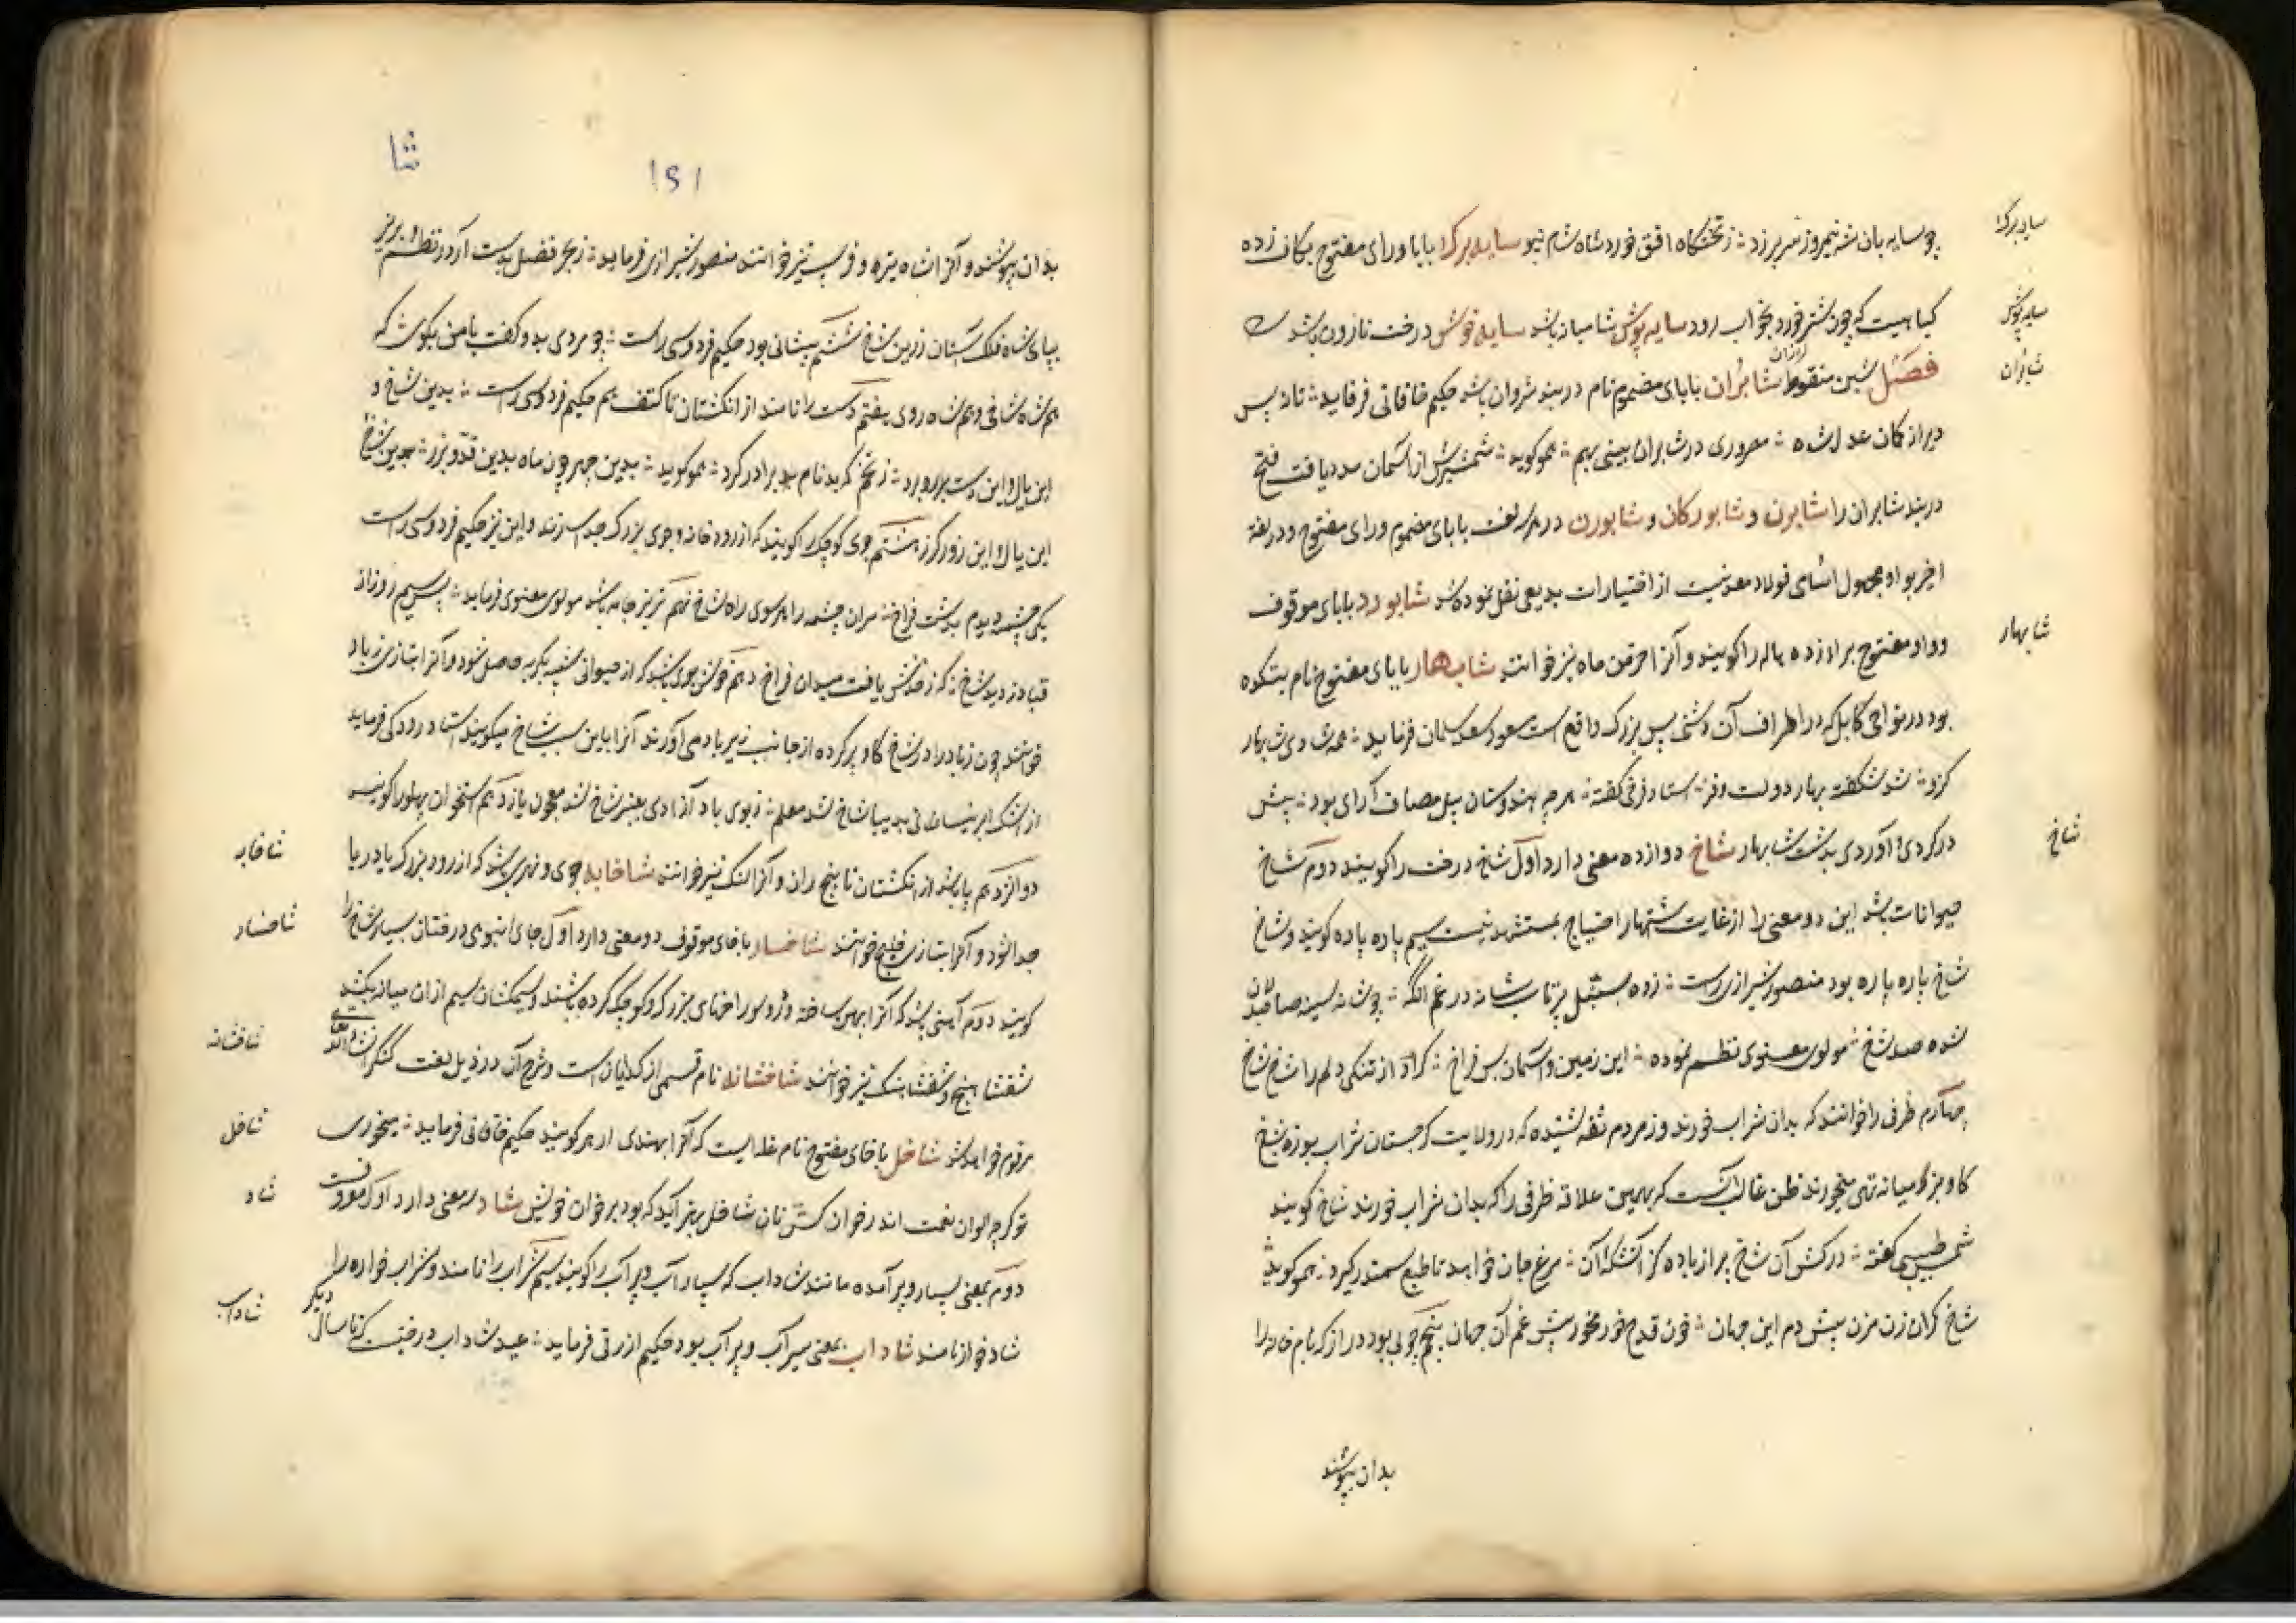 سایه برکا
چو سایه بان شه نیمروز سر بر زد ز تختگاه افق خورد شاه شام نیو سایه برکا بابا و رای مفتوح بکاف زده
سایه پوش
کیاهیست که چون شتر خورد بخواب رود سایه پوش شامیانه باشد سایه خوش درخت نارون باشد
شابران
فصل شین منقوط شابران بابای مضموم نام در بند شروان باشد حکیم خاقانی فرماید
دیر از کان عدل شاه در شابران بینی بهم همو گوید شمشیرش از آسمان مدد یافت فتح
دربند شابران را شابرن و شابورکان و شابورن در هر سه لغت بابای مضموم و رای مفتوح و در لغة
اخیر بواو مجهول اسامی فولاد معدنیست از اختیارات بدیعی نقل نموده شد شابورد بابای موقوف
شابهار
و واو مفتوح برا زده هاله را گویند و آنرا خرمن ماه نیز خوانند شابهار بابای مفتوح نام بتکده
بود در نواحی کابل که در اطراف آن دشتی بس بزرگ واقع است مسعود سعد سلمان فرماید
کزو شد شکفته بهار دولت و فر استاد فرخی گفته هر چه بهندوستان پیل مصاف آرای بود پیش
شاخ
در کردی و آوردی بدشت شابهار شاخ دوازده معنی دارد اول شاخ درخت را گویند دوم شاخ
حیوانات باشد این دو معنی را از غایت اشتهار احتیاج بمستشهد نیست سیم پاره پاره گویند و شاخ
شاخ پاره پاره بود منصور شیرازی راست زده بسنبل پرتاب شانه در غم آنکه چو شانه سینه صاحبدلان
شده صد شاخ مولوی معنوی نظم نموده این زمین و آسمان بس فراخ کرد از تنکی دلم را شاخ شاخ
چهارم ظرفی را خوانند که بدان شراب خورند و ز مردم ثقه شنیده که در ولایت گرجستان شراب بوزه بشاخ
کاو بز کو میانه تهی میخورند ظن غالب آنست که بهمین علاقه ظرفی را که بدان شراب خورند شاخ گویند
شمس طبسی گفته در کش آن شاخ پر از باده کز آتشکه آن مرغ جان خواهد تا طبع سمندر گیرد همو گوید
شاخ کران زن مزن پیش دم این جهان خون قدح خور مخور بیش غم آن جهان پنجم چوبی بود دراز که بام خانه را
بدان بپوشند
شا
۱۵۱
بدان بپوشند و آنرا شاه تیر و فرسب نیز خوانند منصور شیرازی فرماید ز بحر فضل بدست آر در نظم و بریز
بپای شاه فلک آستان زرین شاخ ششم پیشانی بود حکیم فردوسی راست چو مردی بدو گفت با من بگوی که
هم شاه شاخی و هم شاه روی هفتم دست را نامند از انگشتان تا کتف هم حکیم فردوسی راست بدین شاخ و
این یال و این دست برد ز تخم که بد نام بد برادر کرد همو گوید بدین چهر چون ماه بدین قد و برز بدین شاخ
این یال و این زور کرز هشتم جوی کوچک را گویند که از رودخانه و جوی بزرگ جدا سازند و این نیز حکیم فردوسی راست
یکی چشمه دیدم بدشت فراخ مران چشمه را هر سوی راه شاخ نهم تریز جامه باشد مولوی معنوی فرماید پس سیم روز از
قباد زدید شاخ که زخنش یافت میدان فراخ دهم خوش بوی باشد که از حیوانی شبیه بگربه حاصل شود و آنرا بتازی زباد
خوانند چون زباد را در شاخ گاو پر کرده از جانب زیرباد می آورند آنرا باین سبب شاخ میگویند استاد رودکی فرماید
از اشک ابر نیسان نی بدیبا شاخ شد معلم ز بوی باد آزادی بعنبر شاخ شد معجون یازدهم استخوان پهلو را گویند
شاخابه
دوازدهم پا باشد از انگشتان تا بیخ ران و آنرا لنگ نیز خوانند شاخابه جوی و نهری باشد که از رود بزرگ یا دریا
شاخسار
جدا شود و آنرا بتازی خلیج خوانند شاخسار با خای موقوف دو معنی دارد اول جای انبوهی درختان بسیار شاخ را
گویند دوم آهنی باشد که آنرا پهن ساخته و درو سوراخهای بزرگ و کوچک کرده باشند و سیمکشان سیم از ان میانه بکشند
شاخشانه
شفشاهنج و شفشاهنک نیز خوانند شاخشانه نام قسمی از گدایان است و شرح آن در ذیل لغت کنگر انشاءالله تعالی
شاخل
مرقوم خواهد شد شاخل با خای مفتوح نام غله ایست که آنرا بهندی ارهر گویند حکیم خاقانی فرماید
شاد
تو گر چه الوان نعمت اندر خوان کش نان شاخل بهتر آید که بود بر خوان خویش شاد سه معنی دارد اول معروفست
دوم بمعنی بسیار و پر آمده مانند شاداب که بسیار آب و پر آب را گویند سیم شراب را نامند و شراب خواره را
شاداب
شادخوار نامند شاداب بمعنی سیرآب و پر آب بود حکیم ازرقی فرماید عید شاداب درختیست که تا سال دیگر